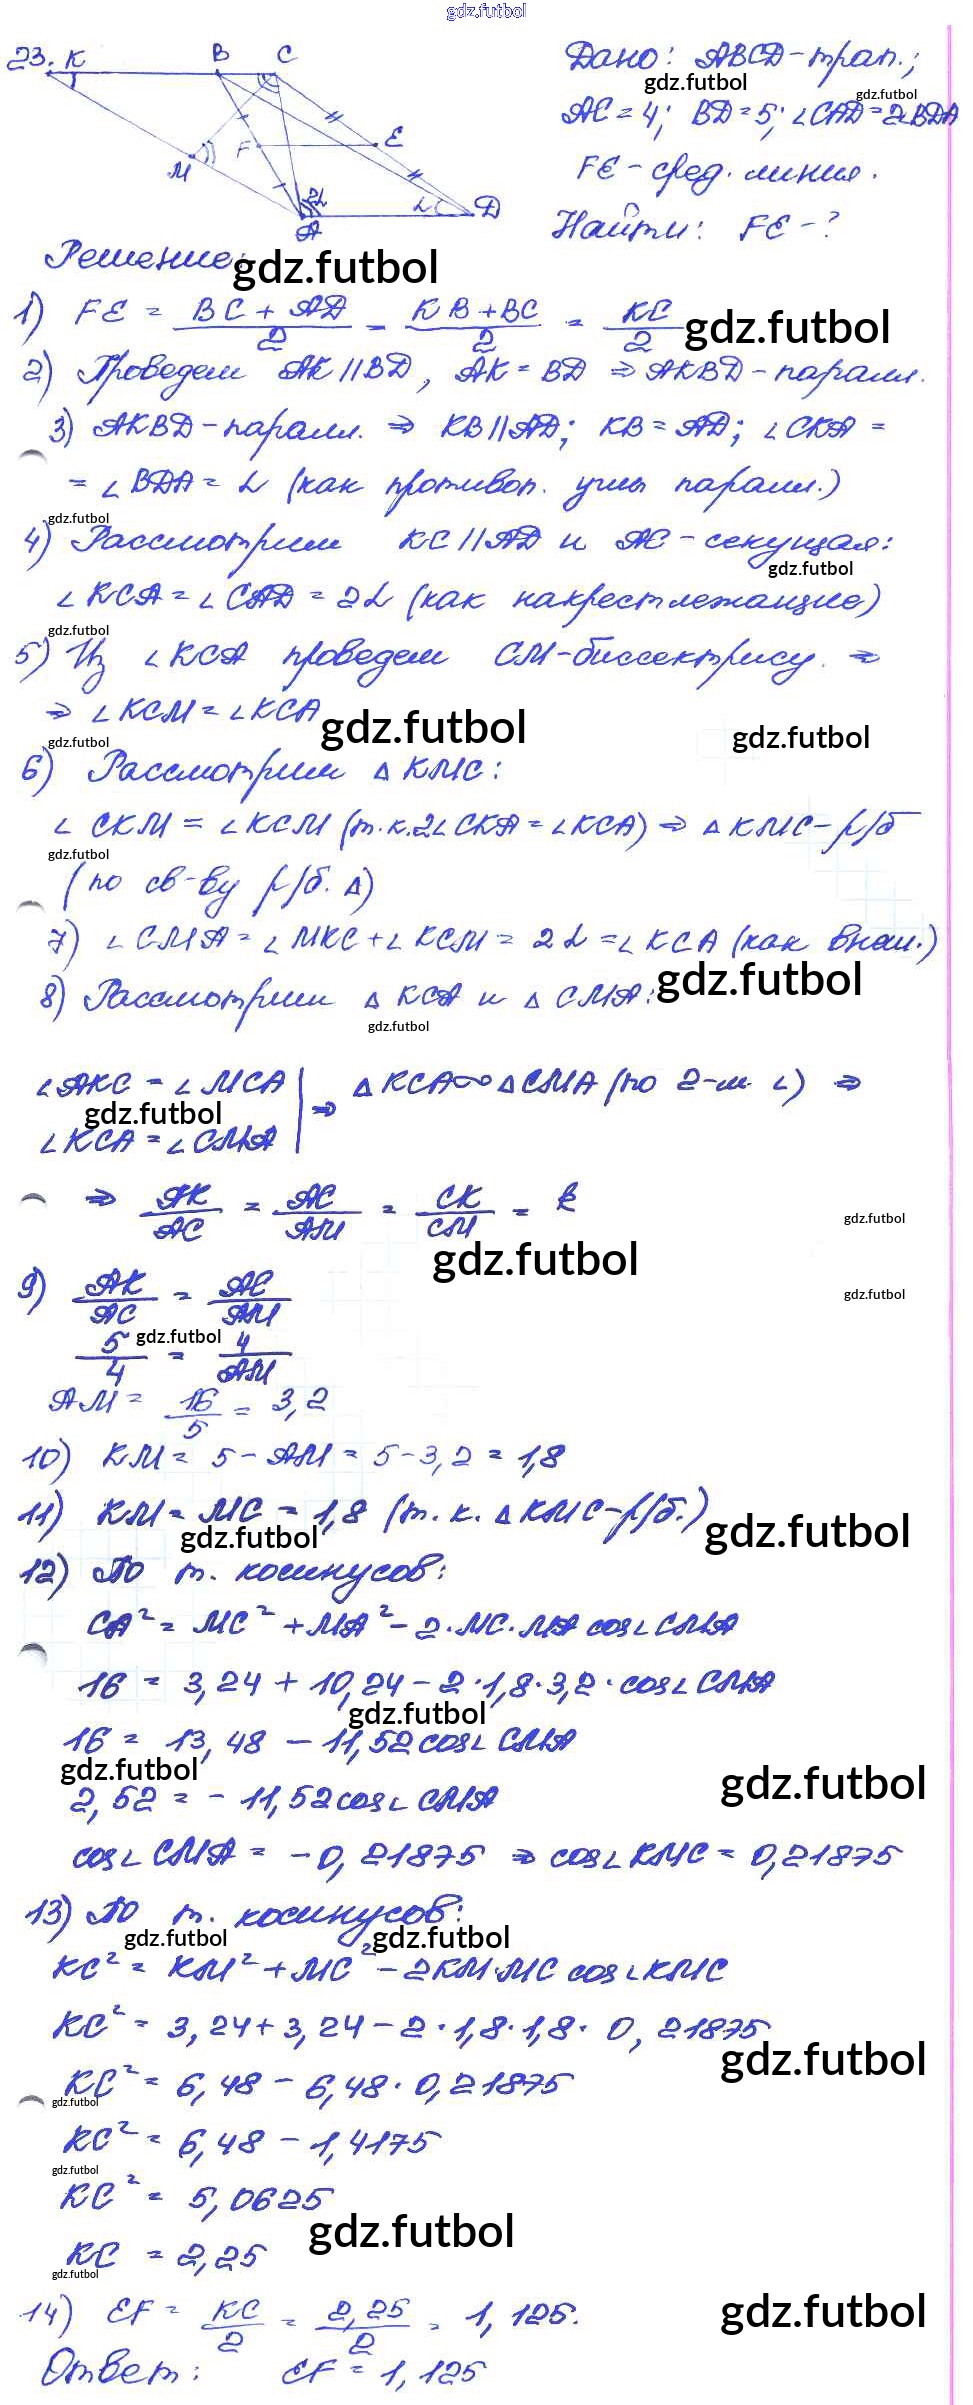 gdz.futbol
23. K B C
M F E
A D
2α α
Дано: ABCD-трап.;
gdz.futbol gdz.futbol
AC=4; BD=5; ∠CAD=2∠BDA
FE-сред. линия.
Найти: FE-?
Решение:
gdz.futbol
1) FE = BC+AD/2 = KB+BC/2 = KC/2
gdz.futbol
2) Проведем AK||BD, AK=BD ⇒ AKBD-паралл.
3) AKBD-паралл. ⇒ KB||AD; KB=AD; ∠CKA=
=∠BDA=α (как противоп. углы паралл.)
gdz.futbol
4) Рассмотрим KC||AD и AC-секущая:
gdz.futbol
∠KCA=∠CAD=2α (как накрест лежащие)
gdz.futbol
5) Из ∠KCA проведем CM-биссектрису. ⇒
⇒ ∠KCM=∠KCA
gdz.futbol gdz.futbol
gdz.futbol
6) Рассмотрим △KMC:
∠CKM=∠KCM (т.к.2∠CKA=∠KCA) ⇒ △KMC-р/б
gdz.futbol
(по св-ву р/б. △)
7) ∠CMA=∠MKC+∠KCM=2α=∠KCA (как внеш.)
gdz.futbol
8) Рассмотрим △KCA и △CMA:
gdz.futbol
∠AKC=∠MCA
∠KCA=∠CMA | ⇒ △KCA∞△CMA (по 2-м ∠) ⇒
gdz.futbol
⇒ AK/AC = AC/AM = CK/CM = k
gdz.futbol
gdz.futbol
9) AK/AC = AC/AM
gdz.futbol
5/4 = 4/AM
gdz.futbol
AM = 16/5 = 3,2
10) KM = 5-AM = 5-3,2 = 1,8
11) KM=MC=1,8 (т.к. △KMC-р/б.)
gdz.futbol gdz.futbol
12) По т. косинусов:
CA²=MC²+MA²-2·MC·MA cos∠CMA
16 = 3,24+10,24-2·1,8·3,2·cos∠CMA
gdz.futbol
16 = 13,48-11,52cos∠CMA
gdz.futbol gdz.futbol
2,52=-11,52cos∠CMA
cos∠CMA=-0,21875 ⇒ cos∠KMC=0,21875
13) По т. косинусов:
gdz.futbol gdz.futbol
KC²=KM²+MC²-2KM·MC cos∠KMC
KC²=3,24+3,24-2·1,8·1,8·0,21875
gdz.futbol
KC²=6,48-6,48·0,21875
gdz.futbol
KC²=6,48-1,4175
gdz.futbol
KC²=5,0625
gdz.futbol
KC =2,25
gdz.futbol
14) EF= KC/2 = 2,25/2 = 1,125.
gdz.futbol
Ответ: EF=1,125